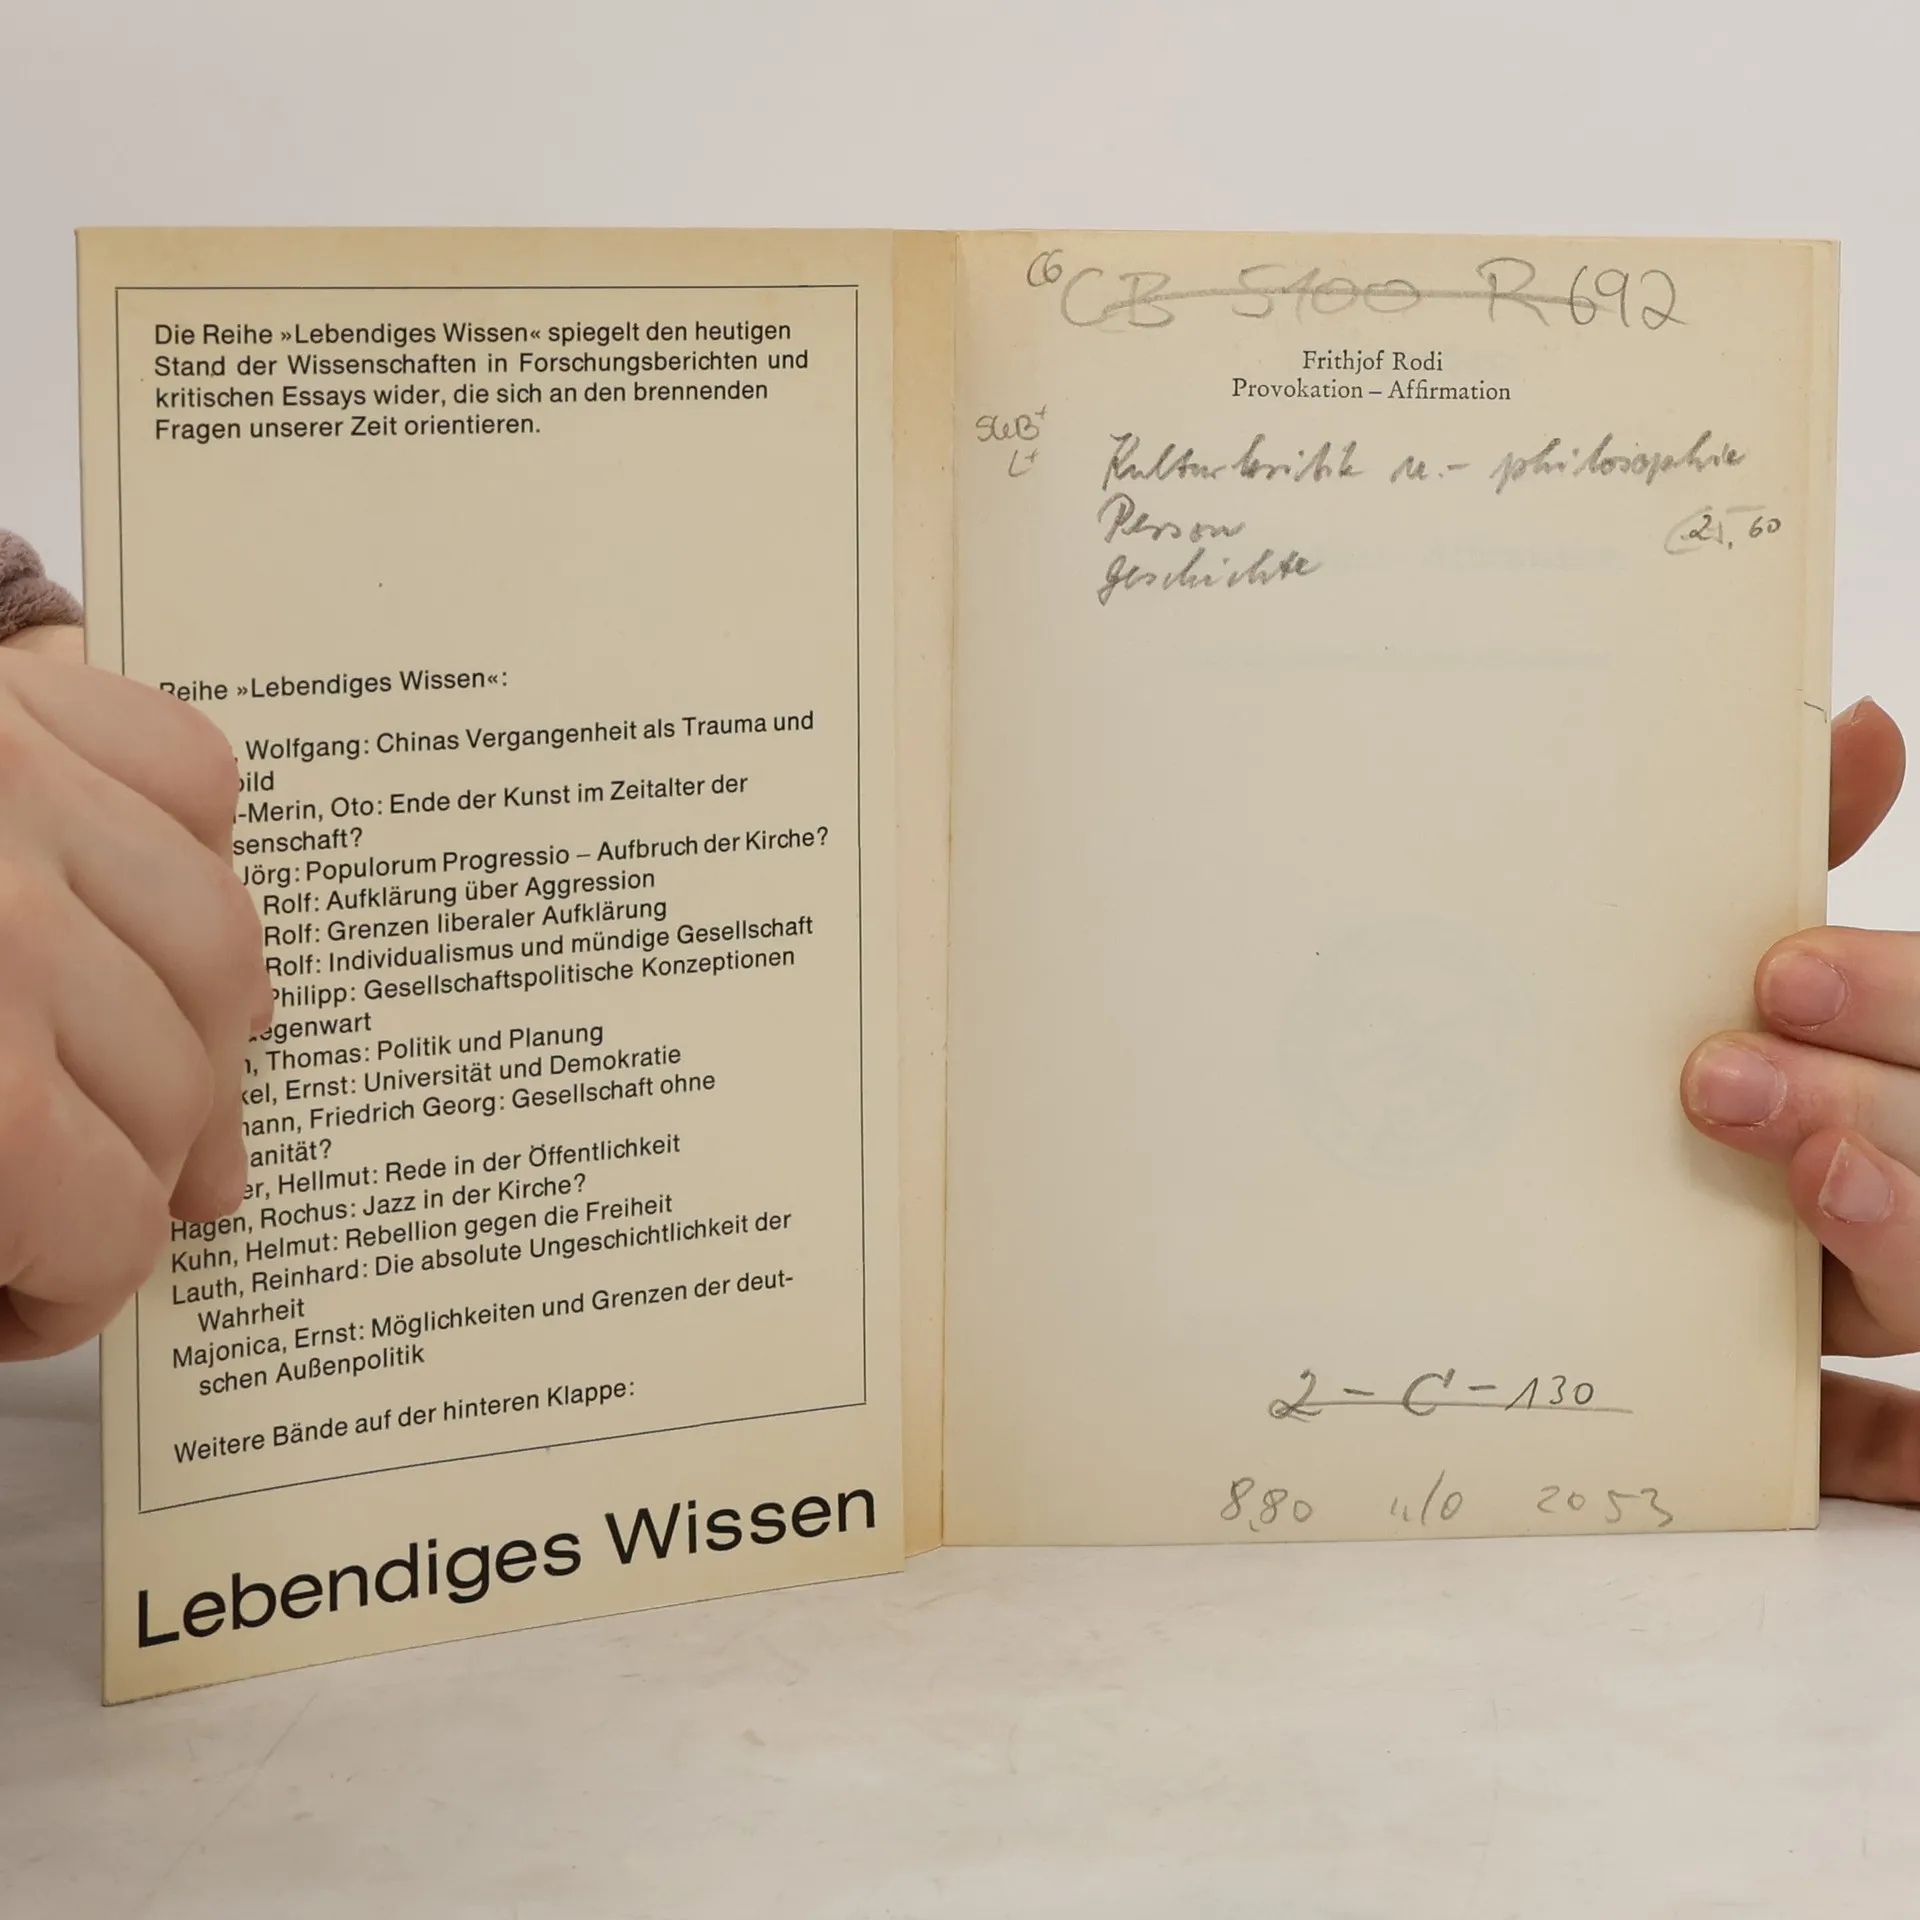 Die Reihe »Lebendiges Wissen« spiegelt den heutigen
Stand der Wissenschaften in Forschungsberichten und
kritischen Essays wider, die sich an den brennenden
Fragen unserer Zeit orientieren.
Reihe »Lebendiges Wissen«:
, Wolfgang: Chinas Vergangenheit als Trauma und
bild
-Merin, Oto: Ende der Kunst im Zeitalter der
senschaft?
Jörg: Populorum Progressio – Aufbruch der Kirche?
Rolf: Aufklärung über Aggression
Rolf: Grenzen liberaler Aufklärung
Rolf: Individualismus und mündige Gesellschaft
Philipp: Gesellschaftspolitische Konzeptionen
egenwart
, Thomas: Politik und Planung
kel, Ernst: Universität und Demokratie
mann, Friedrich Georg: Gesellschaft ohne
anität?
er, Hellmut: Rede in der Öffentlichkeit
Hagen, Rochus: Jazz in der Kirche?
Kuhn, Helmut: Rebellion gegen die Freiheit
Lauth, Reinhard: Die absolute Ungeschichtlichkeit der
Wahrheit
Majonica, Ernst: Möglichkeiten und Grenzen der deut-
schen Außenpolitik
Weitere Bände auf der hinteren Klappe:
Lebendiges Wissen
CB 5100 R692
Frithjof Rodi
Provokation – Affirmation
Kulturkritik u. - philosophie
Person
Geschichte
2 - C - 130
8,80 2053